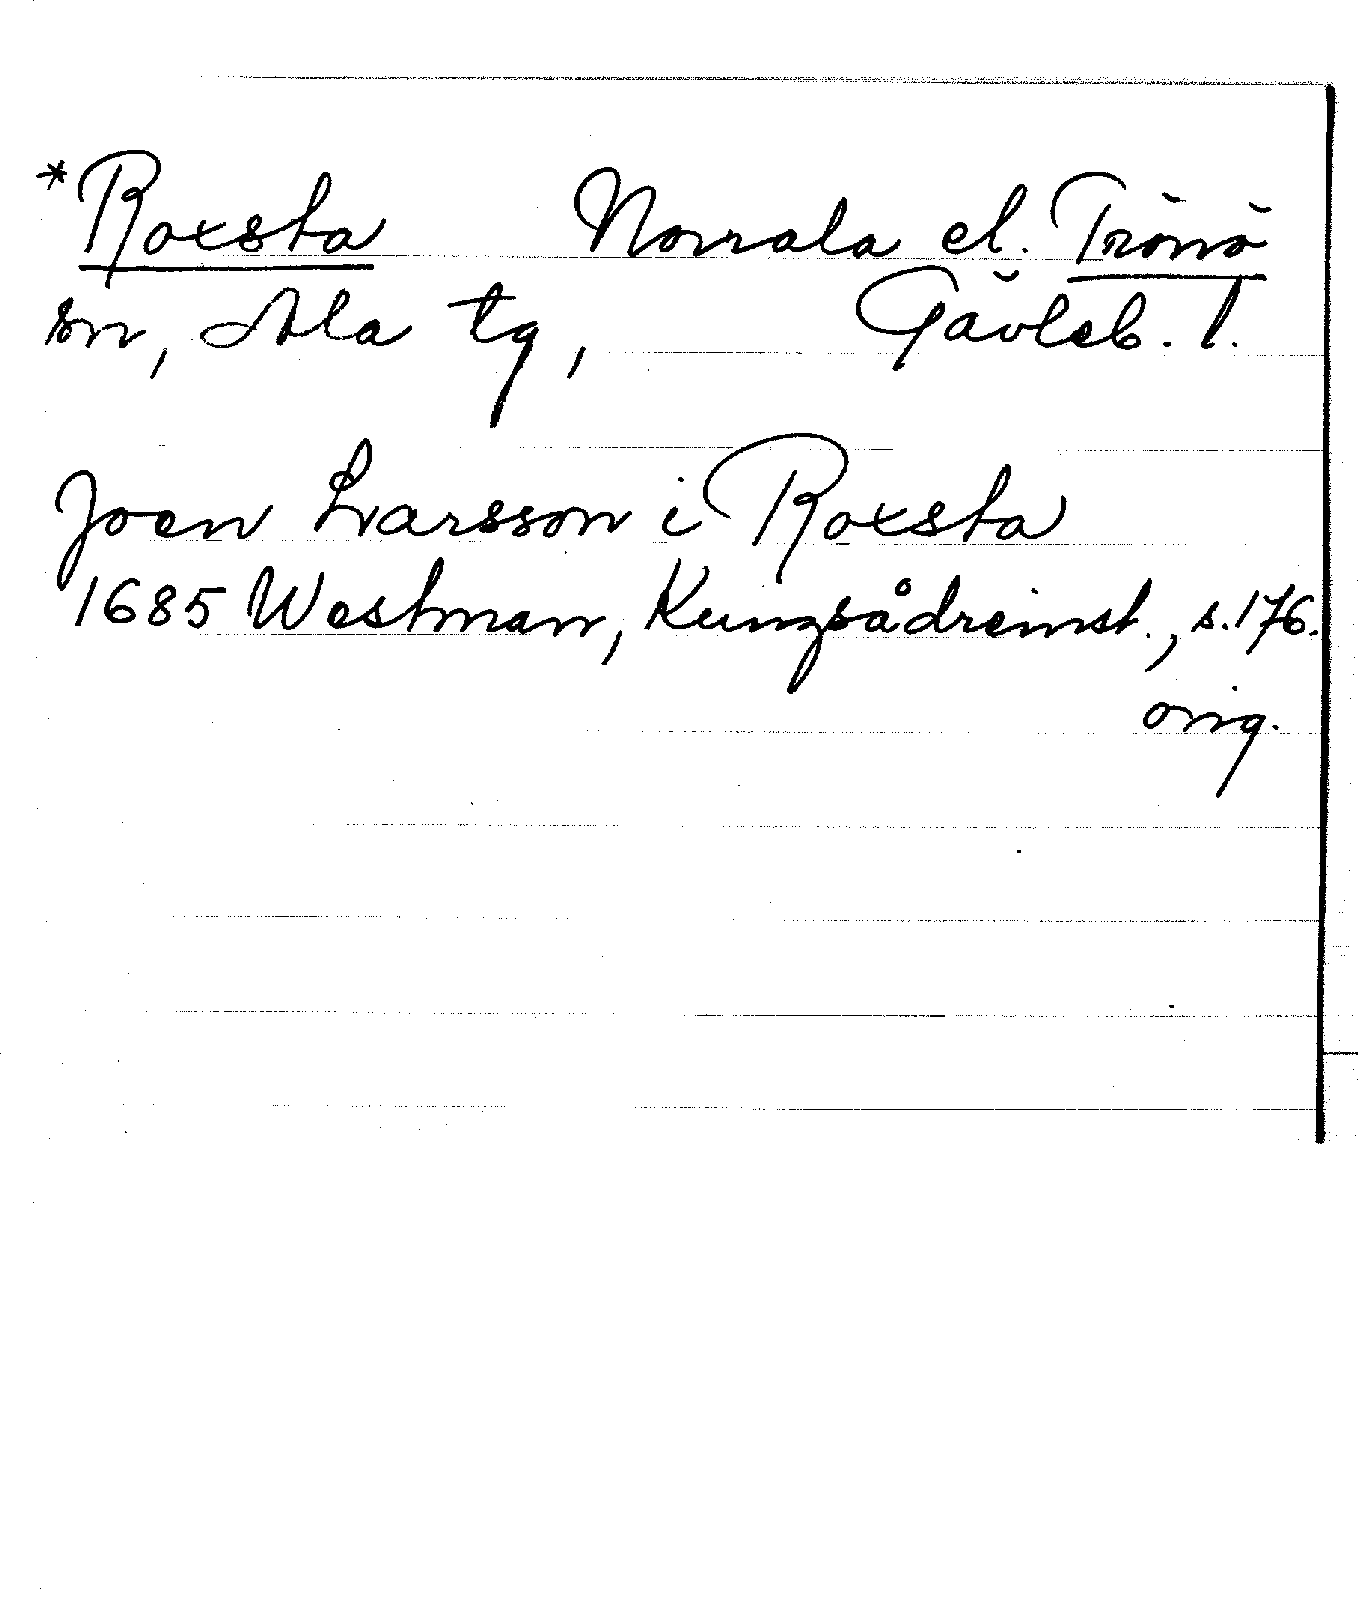 *Roxsta Norrala el. Trönö
sn, Ala tg, Gävleb. l.
Joen Larsson i Roxsta
1685 Westman, Kungsådreinst., s.176.
orig.